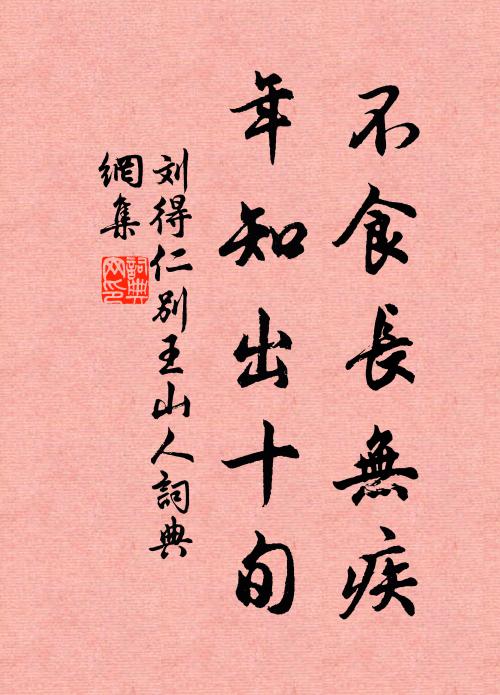 不食長無疾
年知出十旬
刘得仁别王山人詞典
網集
詞典網印